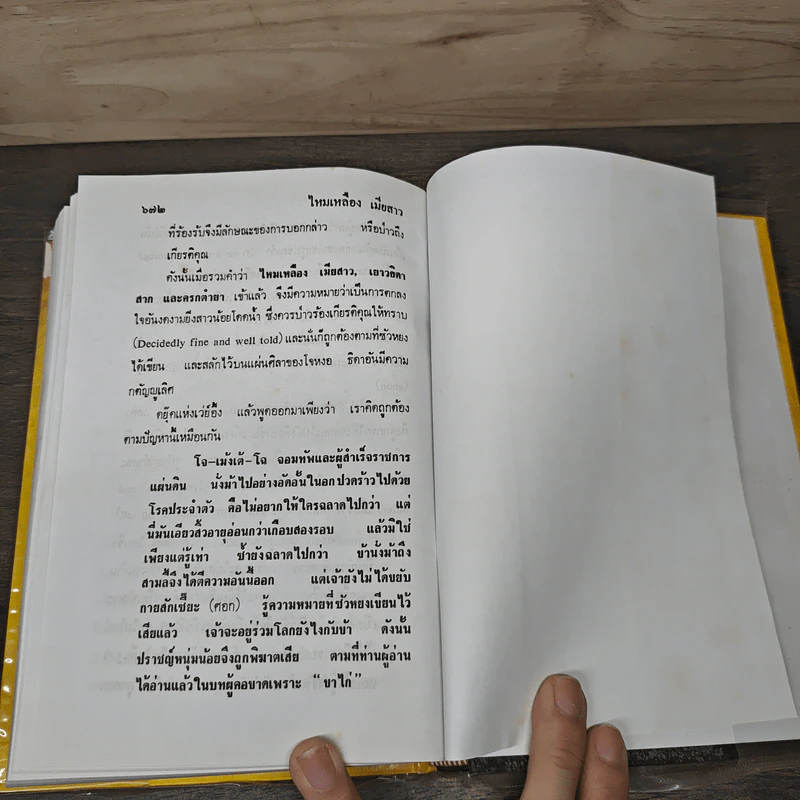 ๖๗๒ ไหมเหลือง เมียสาว
ที่ร้องรับจึงมีลักษณะของการบอกกล่าว หรือป่าวถึง
เกียรติคุณ
ดังนั้นเมื่อรวมคำว่า ไหมเหลือง เมียสาว, เยาวธิดา
สาก และครกตำยา เข้าแล้ว จึงมีความหมายว่าเป็นการตกลง
ใจอันงดงามยิ่งสาวน้อยโดดน้ำ ซึ่งควรป่าวร้องเกียรติคุณให้ทราบ
(Decidedly fine and well told) และนั่นก็ถูกต้องตามที่ชัวหยง
ได้เขียน และสลักไว้บนแผ่นศิลาของโจหงอ ธิดาอันมีความ
กตัญญูเลิศ
ดยุ๊คแห่งเว่ย์อึ้ง แล้วพูดออกมาเพียงว่า เราคิดถูกต้อง
ตามปัญหานี้เหมือนกัน
โจ–เม้งเต้–โฉ จอมทัพและผู้สำเร็จราชการ
แผ่นดิน นั่งม้าไปอย่างอัดอั้นในอกปวดร้าวไปด้วย
โรคประจำตัว คือไม่อยากให้ใครฉลาดไปกว่า แต่
นี่มันเอียวสิ้วอายุอ่อนกว่าเกือบสองรอบ แล้วมิใช่
เพียงแต่รู้เท่า ซ้ำยังฉลาดไปกว่า ข้านั่งม้าถึง
สามลี้จึงได้ตีความอันนี้ออก แต่เจ้ายังไม่ได้ขยับ
กายสักเชี๊ยะ (ศอก) รู้ความหมายที่ชัวหยงเขียนไว้
เสียแล้ว เจ้าจะอยู่ร่วมโลกยังไงกับข้า ดังนั้น
ปราชญ์หนุ่มน้อยจึงถูกพิฆาตเสีย ตามที่ท่านผู้อ่าน
ได้อ่านแล้วในบทผู้คอขาดเพราะ “ขาไก่”